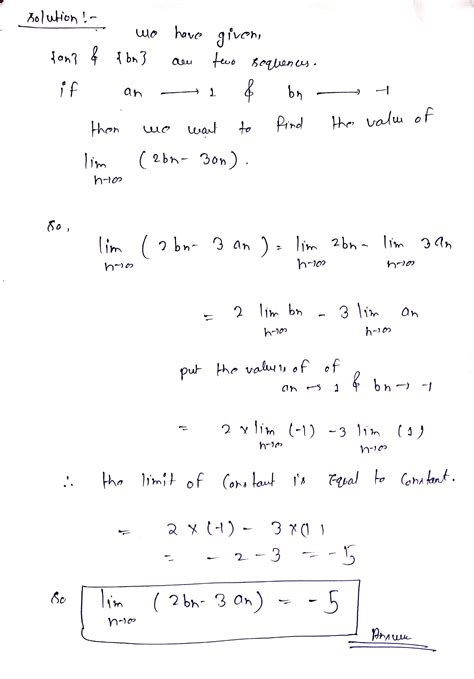 Solution!-
we have given,
{an} & {bn} are two sequences.
if an → 1 & bn → -1
then we want to find the value of
lim n→∞ (2bn- 3an).
So,
lim n→∞ (2bn- 3an) = lim n→∞ 2bn - lim n→∞ 3an
= 2 lim n→∞ bn - 3 lim n→∞ an
put the values of of
an → 1 & bn → -1
= 2 x lim n→∞ (-1) - 3 lim n→∞ (1)
∴ the limit of constant is equal to constant.
= 2 x (-1) - 3 x (1)
= -2-3 = -5
So lim n→∞ (2bn- 3an) = -5
Answer